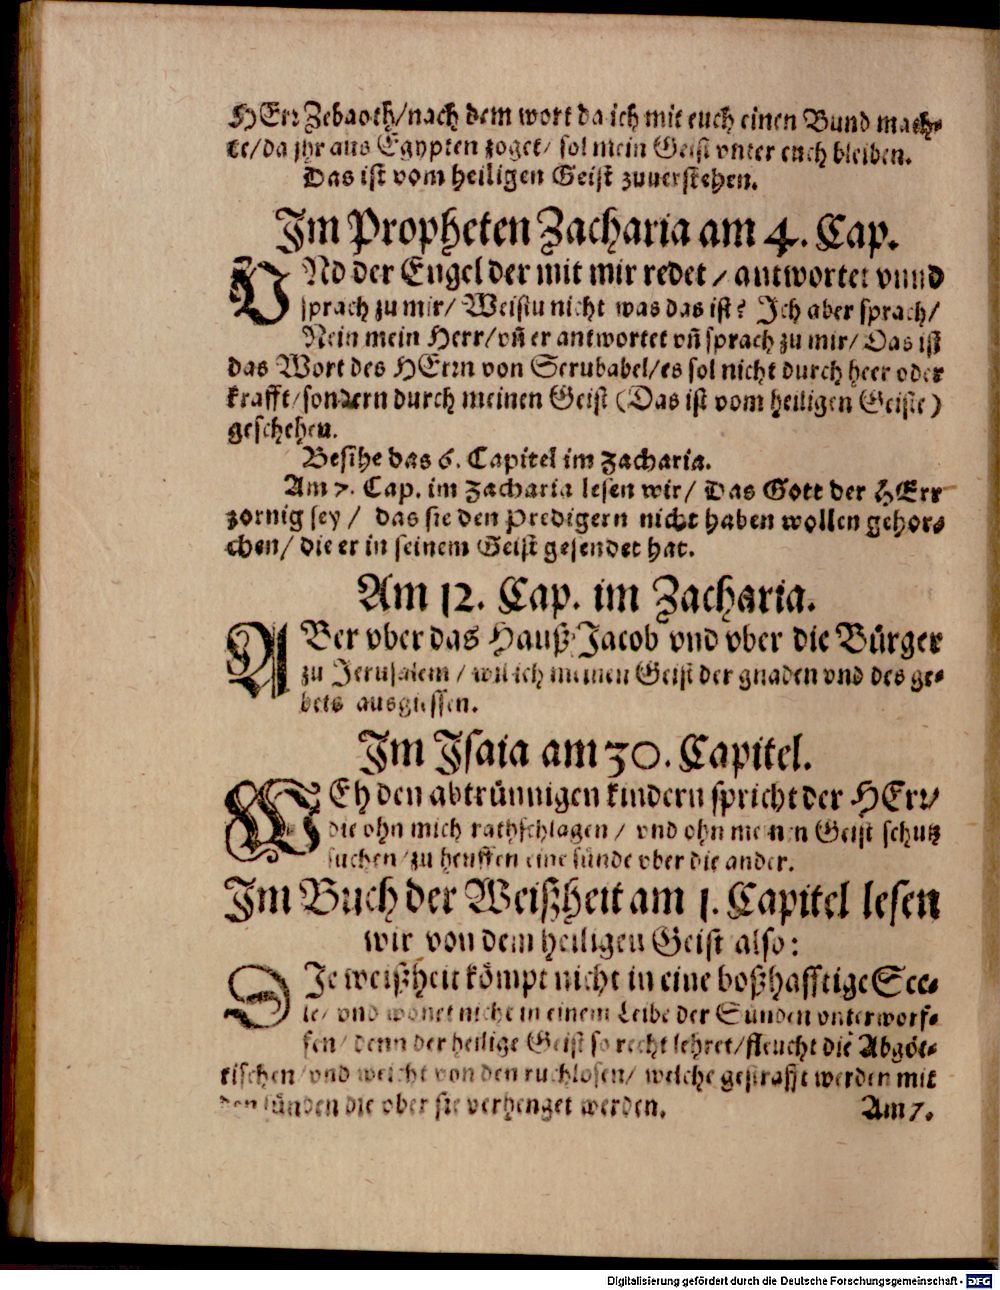 HErr Zebaoth/nach dem wort da ich mit euch einen Bund mach⸗
te/da jhr aus Egypten zoget/ sol mein Geist vnter euch bleiben.
Das ist vom heiligen Geist zuuerstehen.
Im Propheten Zacharia am 4. Cap.
VNd der Engel der mit mir redet / antwortet vnnd
sprach zu mir/ Weistu nicht was das ist? Ich aber sprach/
Nein mein Herr/vn̄ er antwortet vn̄ sprach zu mir/ Das ist
das Wort des HErrn von Serubabel/es sol nicht durch heer oder
krafft/sondern durch meinen Geist (Das ist vom heiligen Geiste)
geschehen.
Besihe das 6. Capitel im Zacharia.
Am 7. Cap. im Zacharia lesen wir/ Das Gott der HErr
zornig sey / das sie den Predigern nicht haben wollen gehor⸗
chen/ die er in seinem Geist gesendet hat.
Am 12. Cap. im Zacharia.
ABer vber das Hauß Jacob vnd vber die Bürger
zu Jerusalem / wil ich meinen Geist der gnaden vnd des ge⸗
bets ausgiessen.
Im Isaia am 30. Capitel.
WEh den abtrünnigen kindern spricht der HErr/
die ohn mich rathschlagen / vnd ohn meinen Geist schutz
suchen/zu heuffen eine sünde vber die ander.
Im Buch der Weißheit am 1. Capitel lesen
wir von dem heiligen Geist also:
DIe weißheit kömpt nicht in eine boßhafftige See⸗
le/ vnd wonet nicht in einem Leibe der Sünden vnterworf⸗
fen/ denn der heilige Geist so recht lehret/fleucht die Abgöt⸗
tischen/vnd weicht von den ruchlosen/ welche gestrafft werden mit
den sünden die vber sie verhenget werden. Am 7.
Digitalisierung gefördert durch die Deutsche Forschungsgemeinschaft - DFG